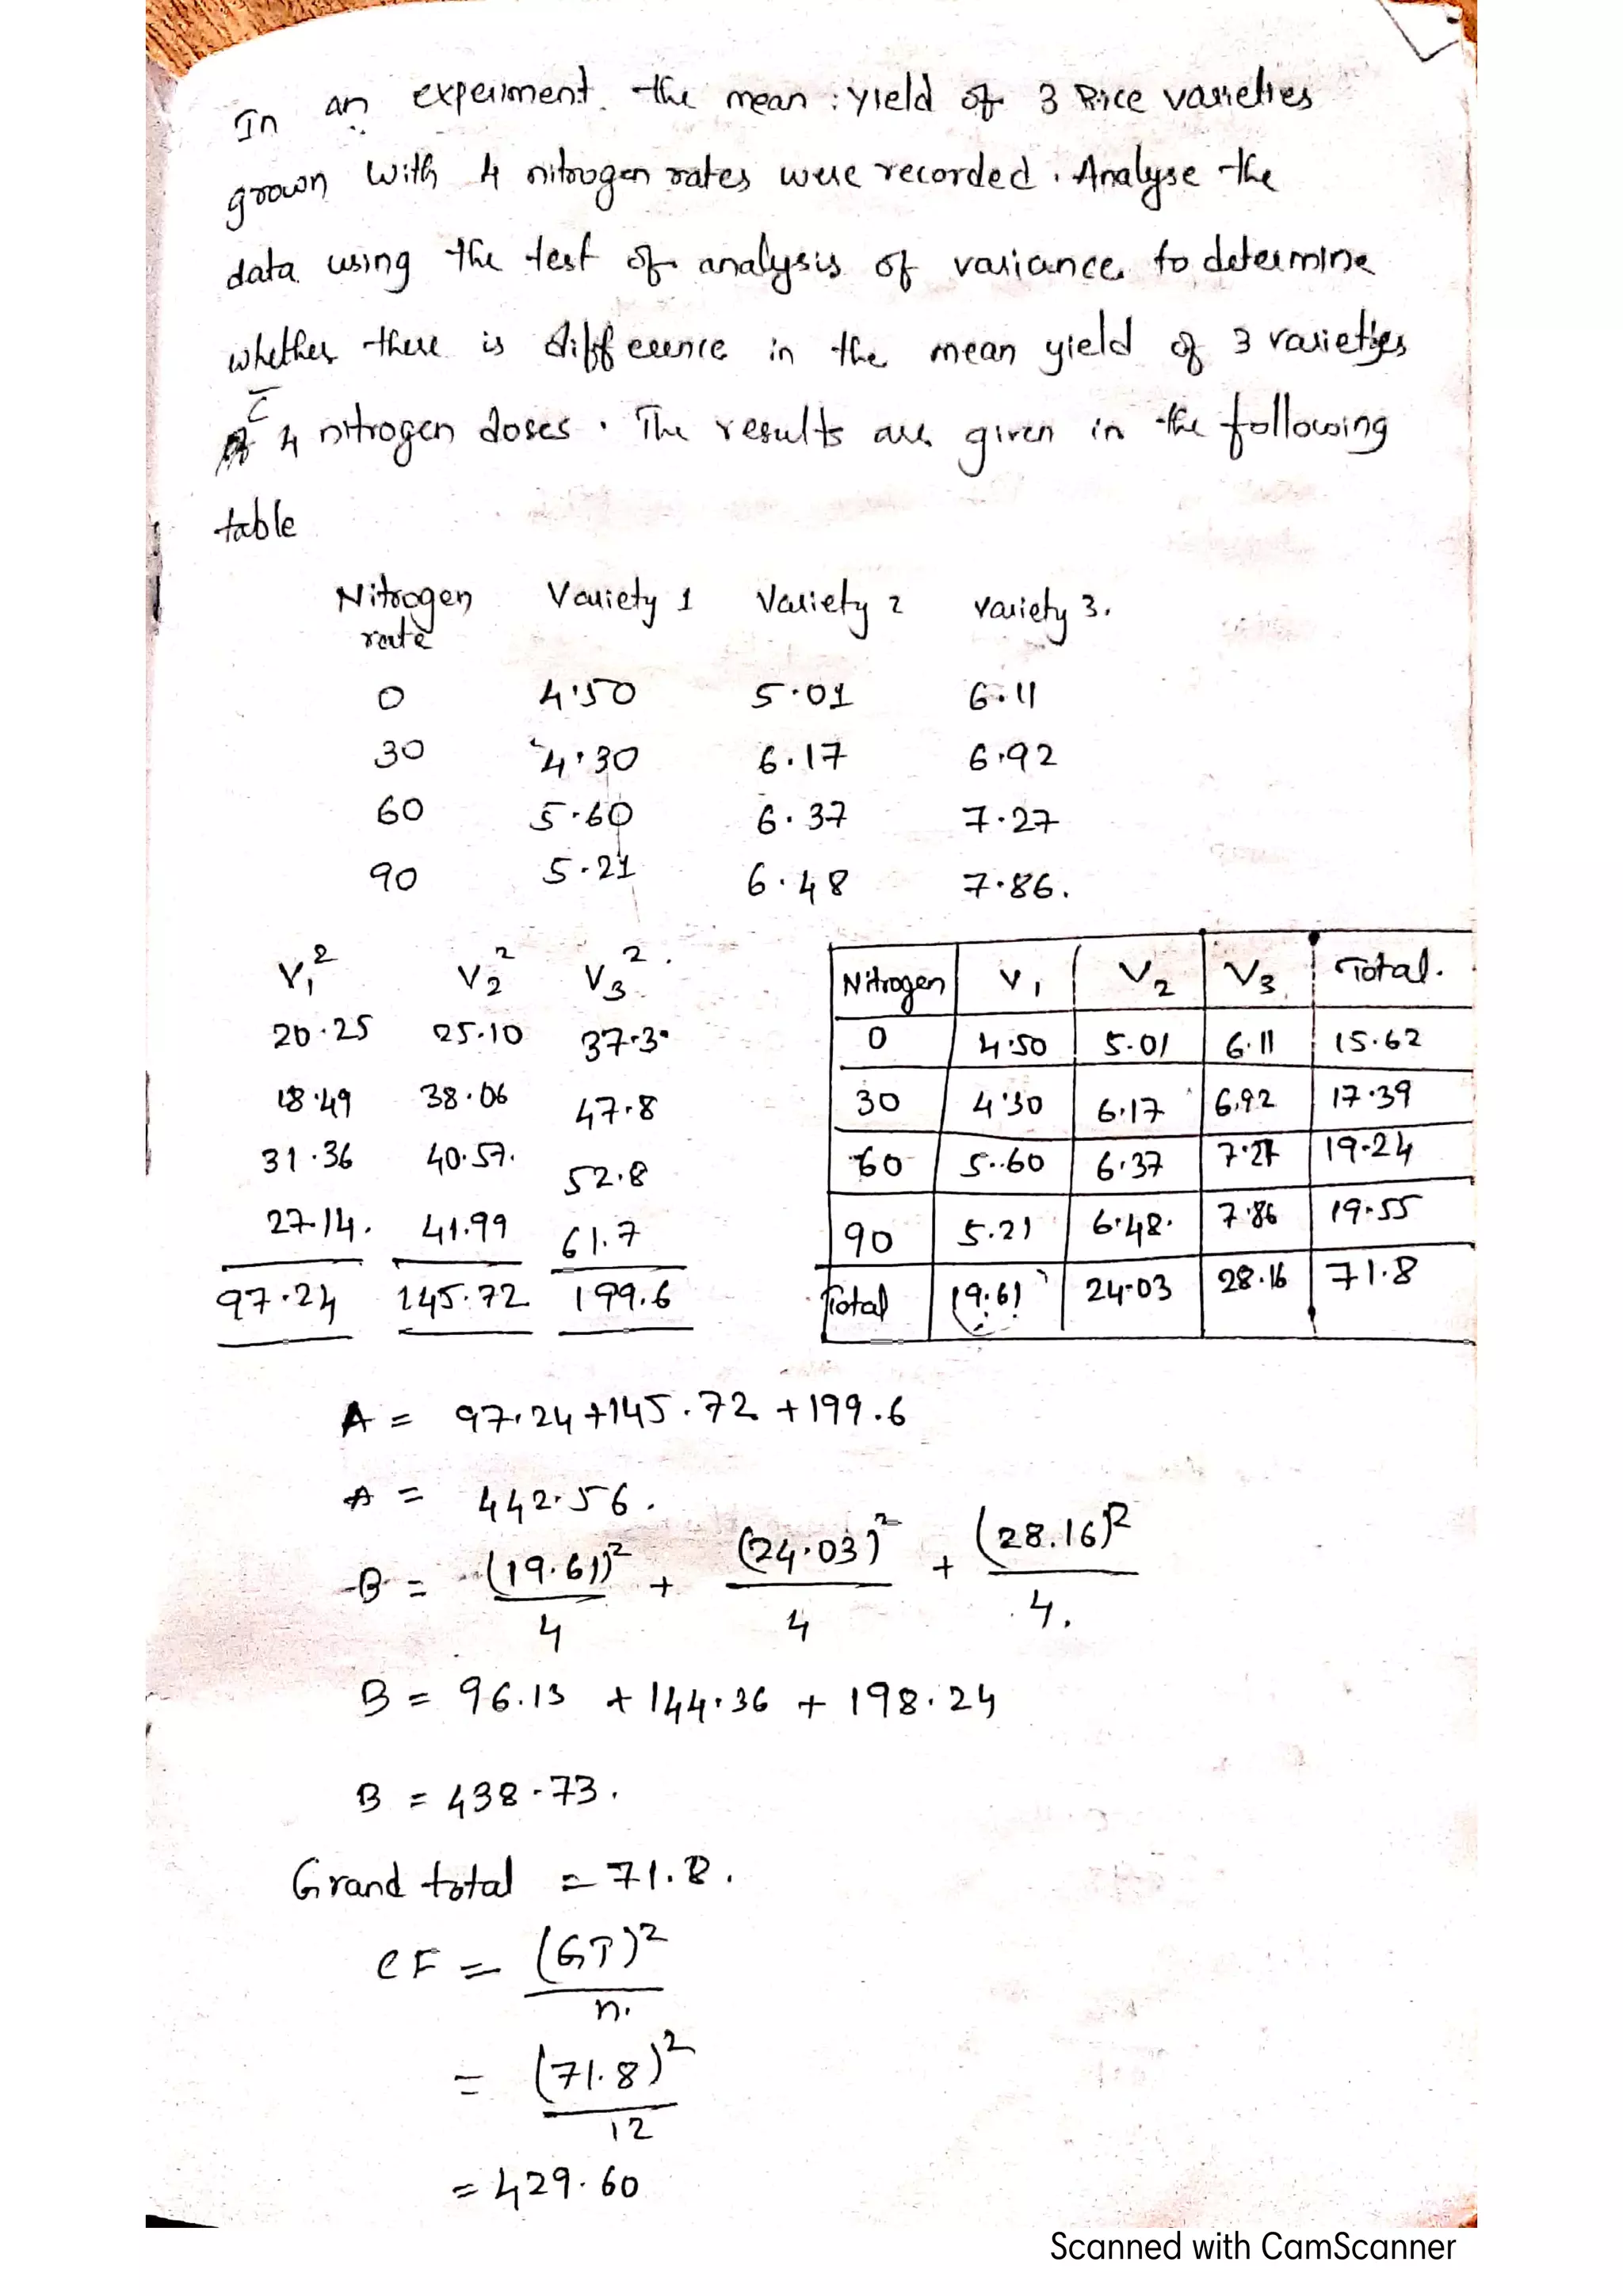 In an experiment the mean yield of 3 Rice varieties
grown with 4 nitrogen rates were recorded. Analyse the
data using the test of analysis of variance to determine
whether there is difference in the mean yield of 3 varieties
c̄ 4 nitrogen doses. The results are given in the following
table
Nitrogen rate Variety 1 Variety 2 Variety 3.
0 4.50 5.01 6.11
30 4.30 6.17 6.92
60 5.60 6.37 7.27
90 5.21 6.48 7.86.
V₁² V₂² V₃².
20.25 25.10 37.3
18.49 38.06 47.8
31.36 40.57. 52.8
27.14. 41.99 61.7
97.24 145.72 199.6
Nitrogen V₁ V₂ V₃ Total.
0 4.50 5.01 6.11 15.62
30 4.30 6.17 6.92 17.39
60 5.60 6.37 7.27 19.24
90 5.21 6.48. 7.86 19.55
Total 19.61 24.03 28.16 71.8
A = 97.24+145.72+199.6
A = 442.56.
B = (19.61)²/4 + (24.03)²/4 + (28.16)²/4.
B = 96.13 + 144.36 + 198.24
B = 438.73.
Grand total = 71.8.
CF = (GT)²/n.
= (71.8)²/12
= 429.60
Scanned with CamScanner